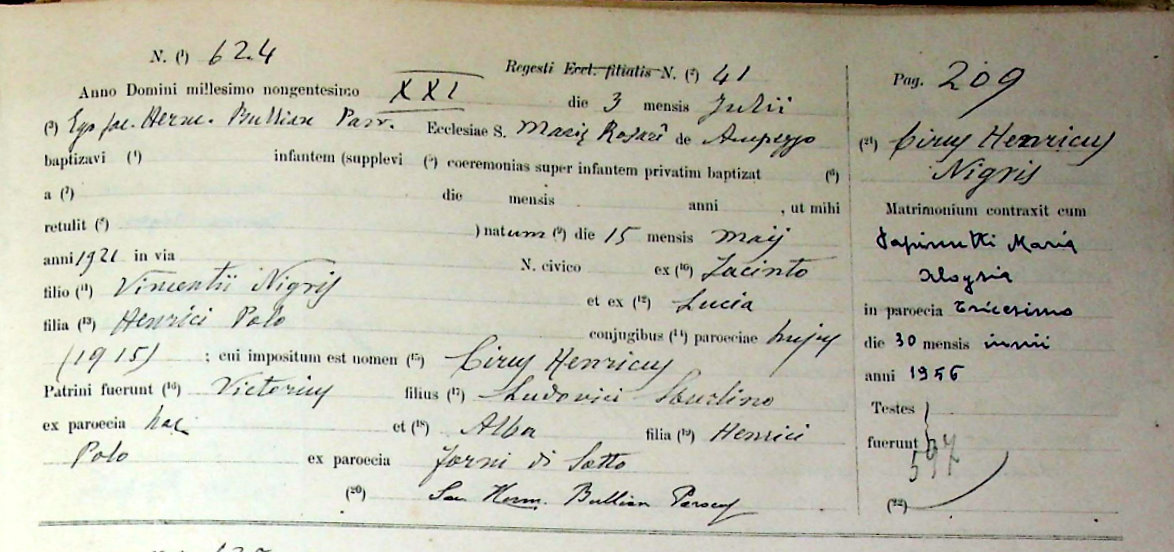 N. (¹) 624
Regesti Eccl. filialis N. (²) 41
Anno Domini millesimo nongentesimo XXI die 3 mensis Julii
(³) Ego sac. Herm. Bullian Par. Ecclesiae S. Marię Rosarî de Ampezzo
baptizavi (⁴) infantem (supplevi (⁵) coeremonias super infantem privatim baptizat (⁶)
a (⁷) die mensis anni , ut mihi
retulit (⁸) ) natum (⁹) die 15 mensis Maij
anni 1921 in via N. civico ex (¹⁰) Jacinto
filio (¹¹) Vincentii Nigris et ex (¹²) Lucia
filia (¹³) Henrici Polo conjugibus (¹⁴) paroeciae hujus
(1915) ; cui impositum est nomen (¹⁵) Cirus Henricus
Patrini fuerunt (¹⁶) Victorius filius (¹⁷) Ludovici
ex paroecia hac et (¹⁸) Alba filia (¹⁹) Henrici
Polo ex paroecia Forni di Sotto
(²⁰) Sac. Herm. Bullian Parocus
Pag. 209
(²¹) Cirus Henricus
Nigris
Matrimonium contraxit cum
Maria
Aloysia
in paroecia Tricesimo
die 30 mensis iunii
anni 1956
Testes
fuerunt
597
(²²)